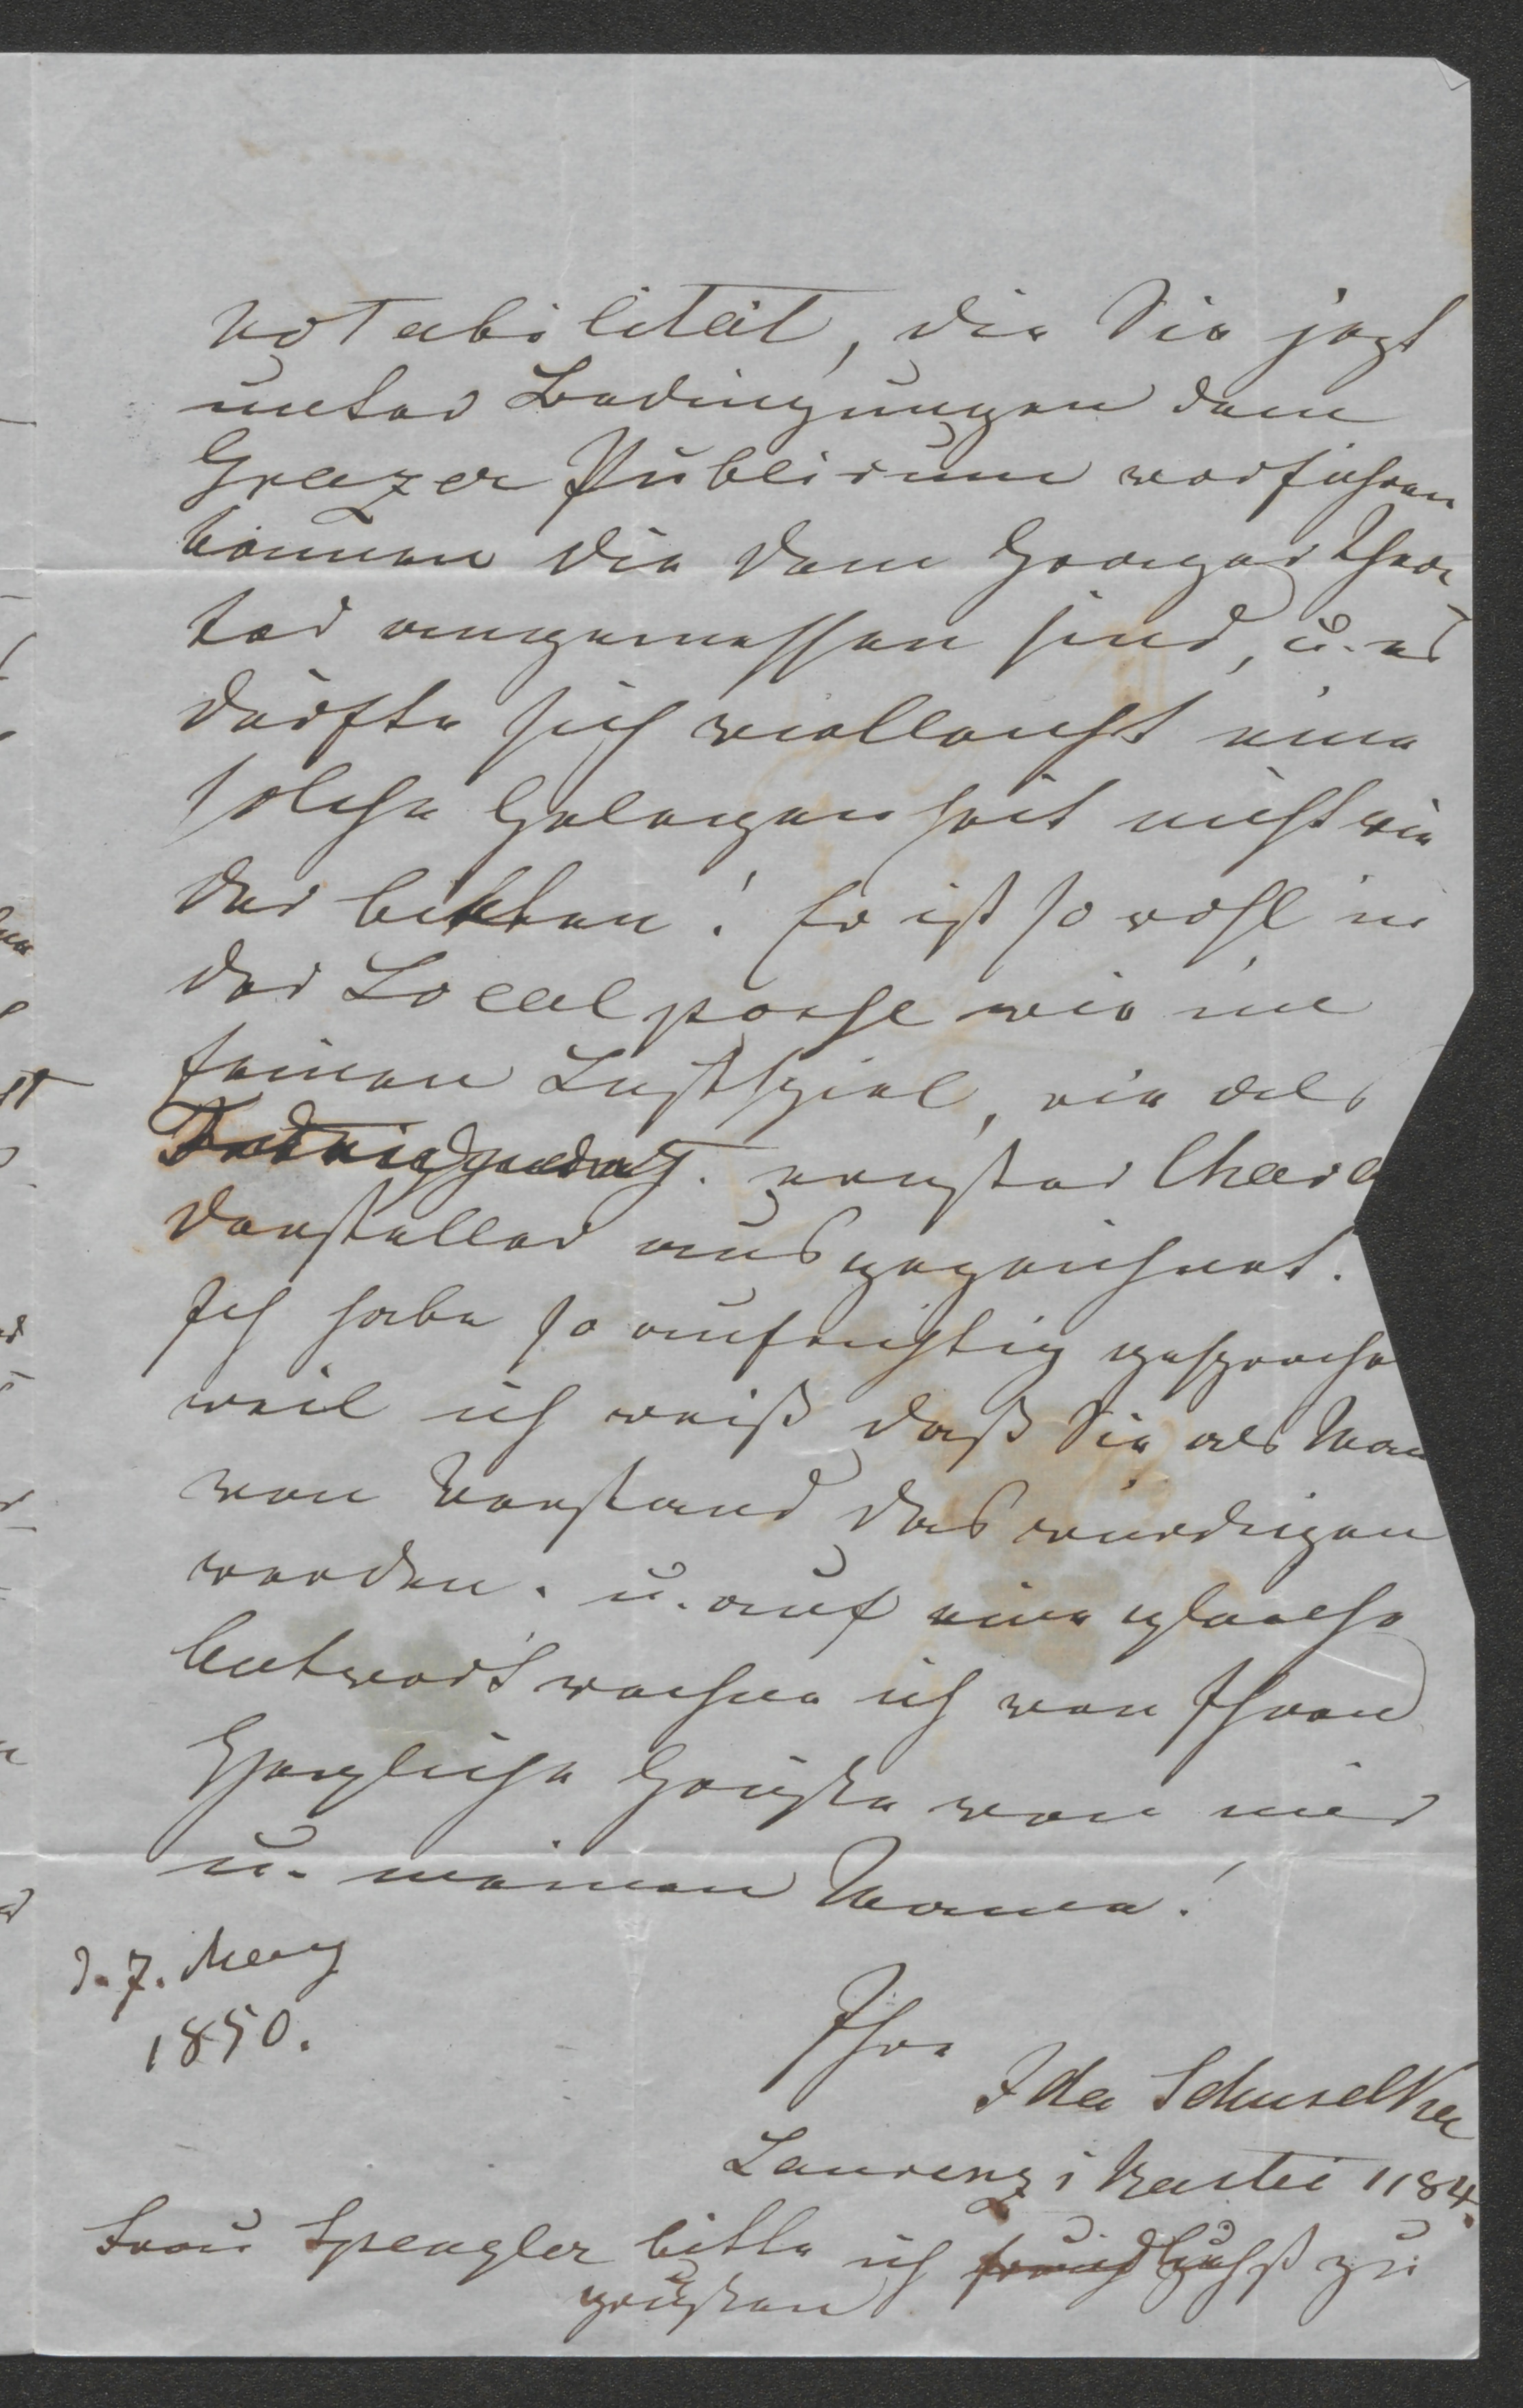 notabilität, die Sie jezt
unter Bedingungen dem
Grazer Publicum vorführen
können die dem Grazer Thea
ter angemessen sind, u. es
dürfte sich vielleicht eine
solche Gelegenheit nicht wie
der biethen! Er ist so wohl in
der Localposse wie im
feinen Lustspiel, wie als
ernster Chara
dersteller ausgezeichnet.
Ich habe so aufrichtig gesproche
weil ich weiß daß Sie als Man
von Verstand das würdigen
werden. u. auf eine gleiche
Antwort rechne ich von Ihnen
Herzliche Grüße von mir
u. meinem Manne!
d. 7. Merz
1850.
Ihre
Ida Schuselka
Laurenz i Bastei 1184.
Frau Spengler bitte ich freundlichst zu
grüßen